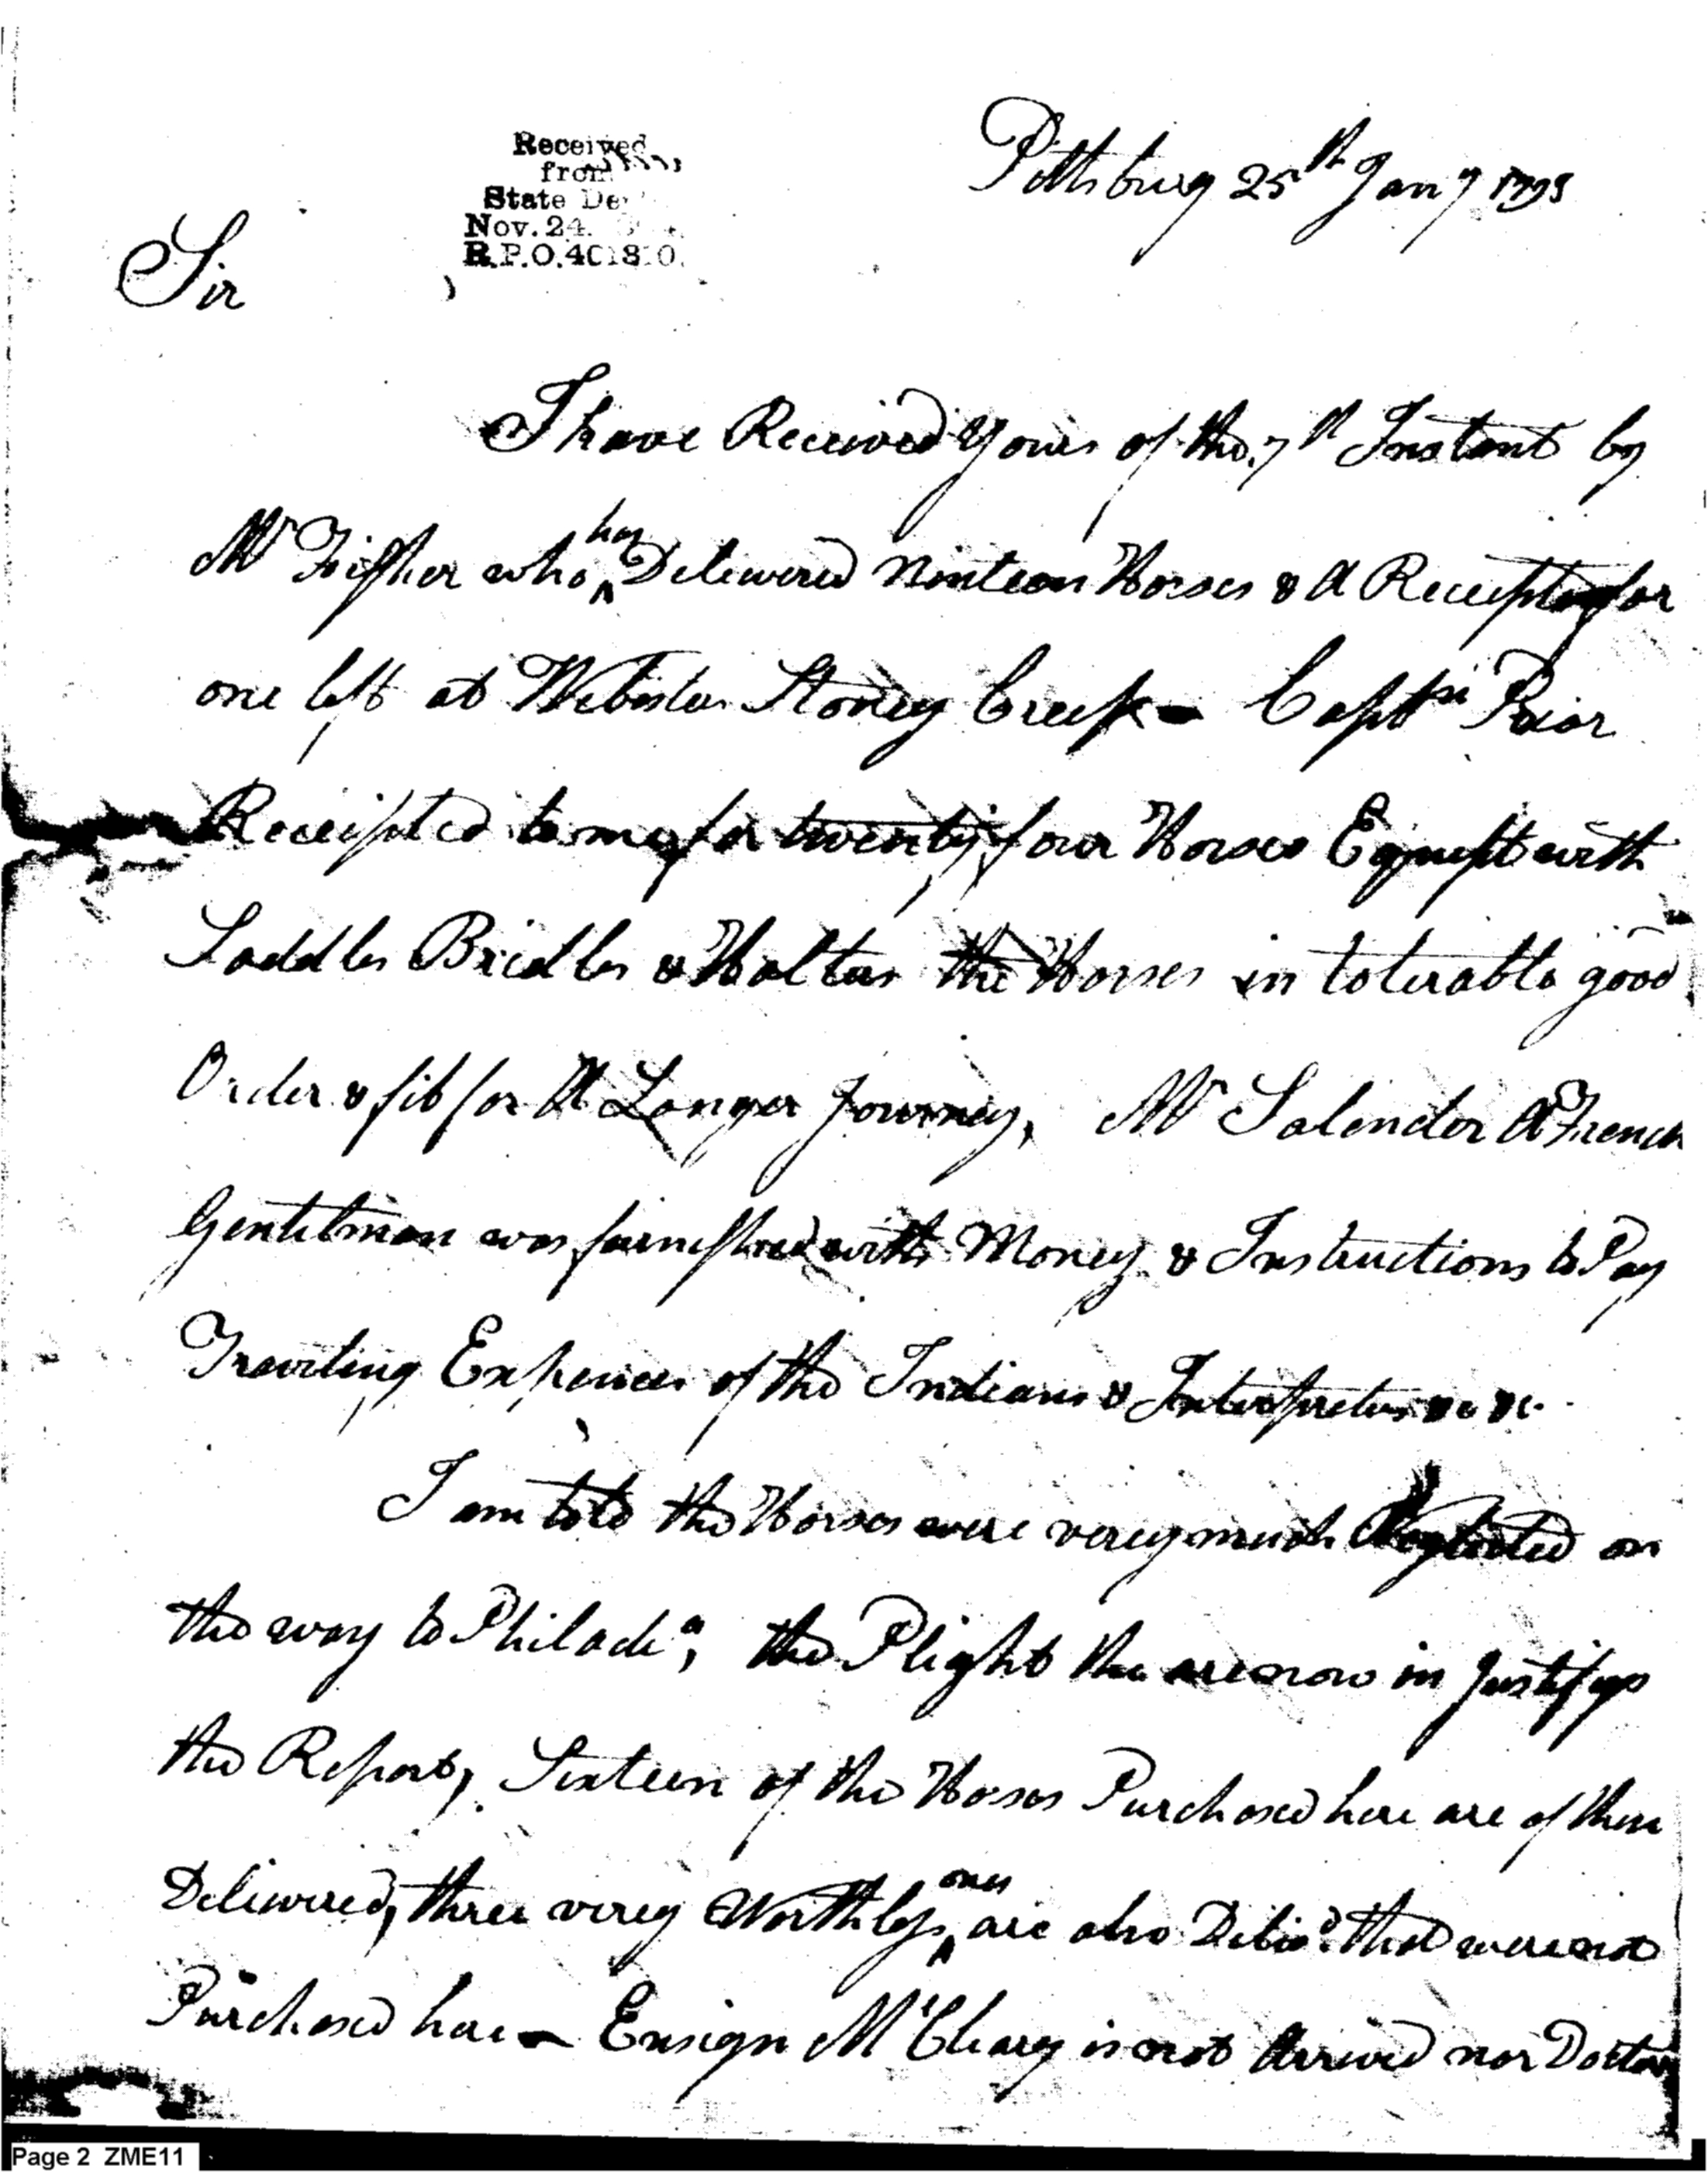 Pittsburg 25th Jany 1795
Received
from
State De
Nov. 24.
R.P.O. 401810.
Sir
I have Received Yours of the 7th Instant by
Mr Fisher who has Delivered Ninteen Horses & A Receipt for
one left at Webster Stoney Creek - Captn Prior
Receipted to me for twenty four Horses Equipt with
Saddles Bridles & Halters the Horses in tolerable good
Order & fit for A Longer Journey, Mr Salinder A French
Gentilman was furnished with Money & Instructions to Pay
Traviling Expences of the Indians & Interpreters &c &c.
I am told the Horses were verey much Neglected on
the way to Philade.a, the Plight the are now in Justifys
the Report, Sixteen of the Horses Purchased here are of those
Delivered, three verey Worthless ones are also Delivd. that were not
Purchased here - Ensign McCleary is not Arrived nor Doctor
Page 2 ZME11